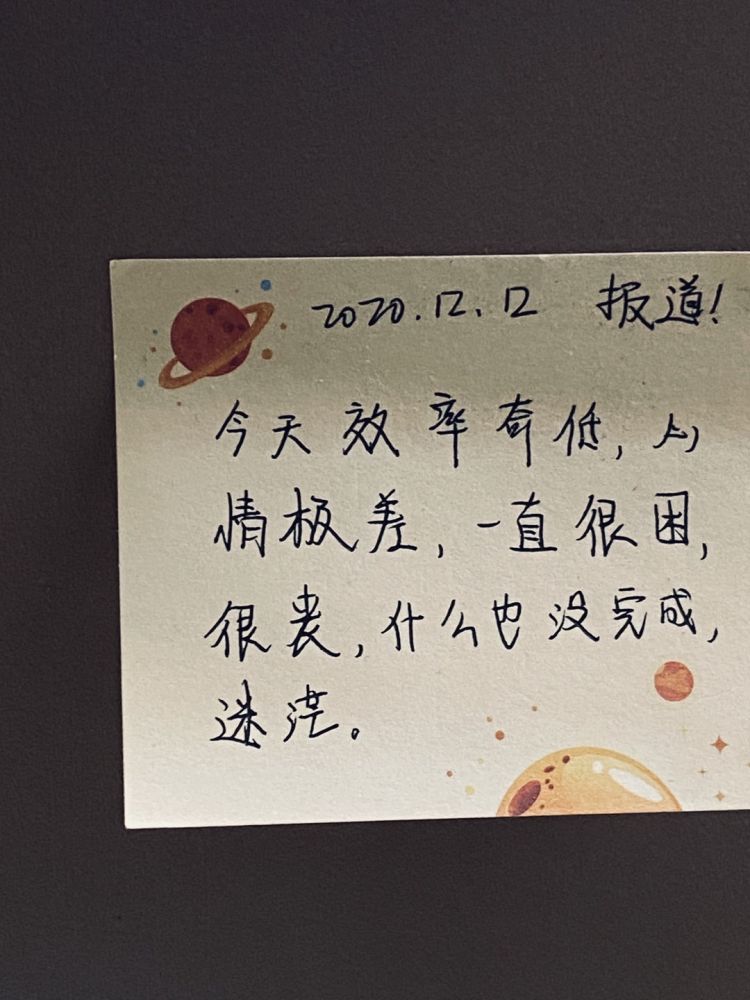 2020.12.12 报道!
今天效率奇低,心
情极差,一直很困,
很丧,什么也没完成,
迷茫。